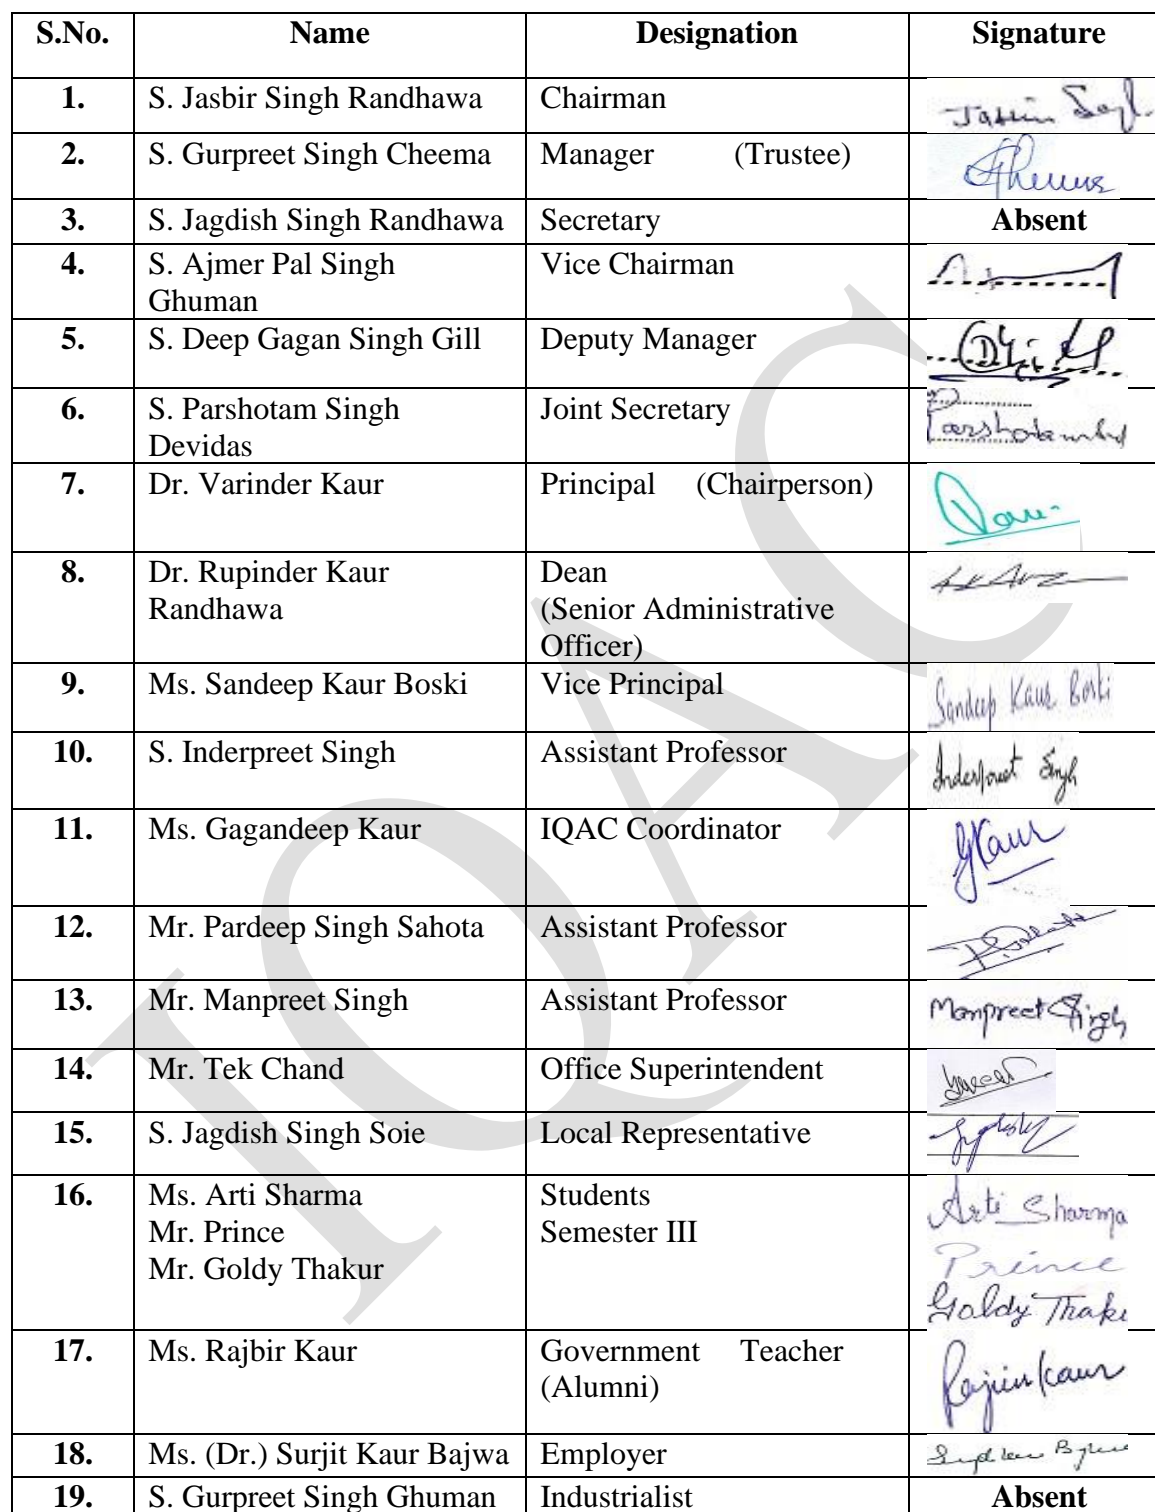 S.No. Name Designation Signature
1. S. Jasbir Singh Randhawa Chairman
2. S. Gurpreet Singh Cheema Manager (Trustee)
3. S. Jagdish Singh Randhawa Secretary Absent
4. S. Ajmer Pal Singh Vice Chairman
Ghuman
5. S. Deep Gagan Singh Gill Deputy Manager
6. S. Parshotam Singh Joint Secretary
Devidas
7. Dr. Varinder Kaur Principal (Chairperson)
8. Dr. Rupinder Kaur Dean
Randhawa (Senior Administrative
Officer)
9. Ms. Sandeep Kaur Boski Vice Principal Sandeep Kaur Boski
10. S. Inderpreet Singh Assistant Professor Inderpreet Singh
11. Ms. Gagandeep Kaur IQAC Coordinator GKaur
12. Mr. Pardeep Singh Sahota Assistant Professor
13. Mr. Manpreet Singh Assistant Professor Manpreet Singh
14. Mr. Tek Chand Office Superintendent
15. S. Jagdish Singh Soie Local Representative
16. Ms. Arti Sharma Students Arti Sharma
Mr. Prince Semester III Prince
Mr. Goldy Thakur Goldy Thaku
17. Ms. Rajbir Kaur Government Teacher
(Alumni)
18. Ms. (Dr.) Surjit Kaur Bajwa Employer
19. S. Gurpreet Singh Ghuman Industrialist Absent
IQAC